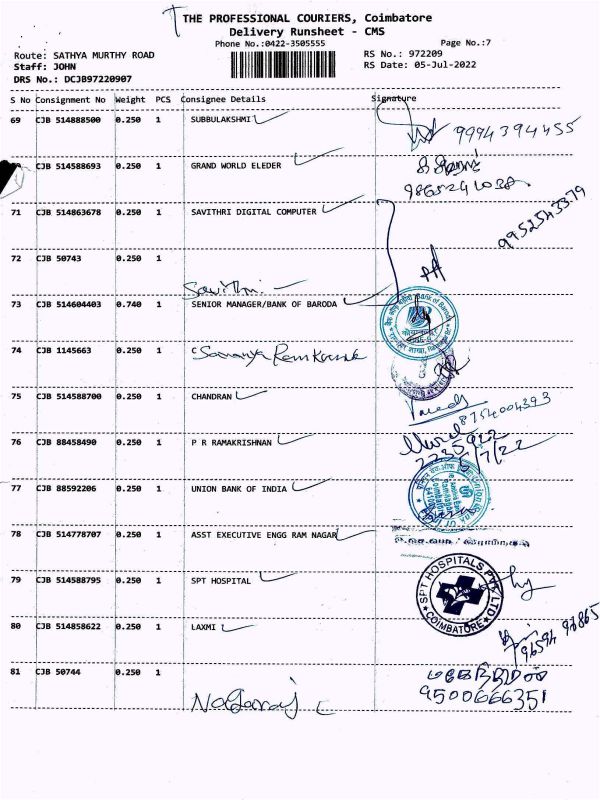 THE PROFESSIONAL COURIERS, Coimbatore
Delivery Runsheet - CMS
Phone No.:0422-3505555 Page No.:7
Route: SATHYA MURTHY ROAD RS No.: 972209
Staff: JOHN RS Date: 05-Jul-2022
DRS No.: DCJB97220907
S No Consignment No Weight PCS Consignee Details Signature
69 CJB 514888500 0.250 1 SUBBULAKSHMI
9994394455
CJB 514588693 0.250 1 GRAND WORLD ELEDER
71 CJB 514863678 0.250 1 SAVITHRI DIGITAL COMPUTER
9952543379
72 CJB 50743 0.250 1
Savithri
73 CJB 514604403 0.740 1 SENIOR MANAGER/BANK OF BARODA
Bank of Baroda
74 CJB 1145663 0.250 1 C
75 CJB 514588700 0.250 1 CHANDRAN
8754004393
76 CJB 88458490 0.250 1 P R RAMAKRISHNAN
77 CJB 88592206 0.250 1 UNION BANK OF INDIA
78 CJB 514778707 0.250 1 ASST EXECUTIVE ENGG RAM NAGAR
79 CJB 514588795 0.250 1 SPT HOSPITAL
SPT HOSPITALS PVT LTD
COIMBATORE
80 CJB 514858622 0.250 1 LAXMI
81 CJB 50744 0.250 1
9500666351
Nagaraj